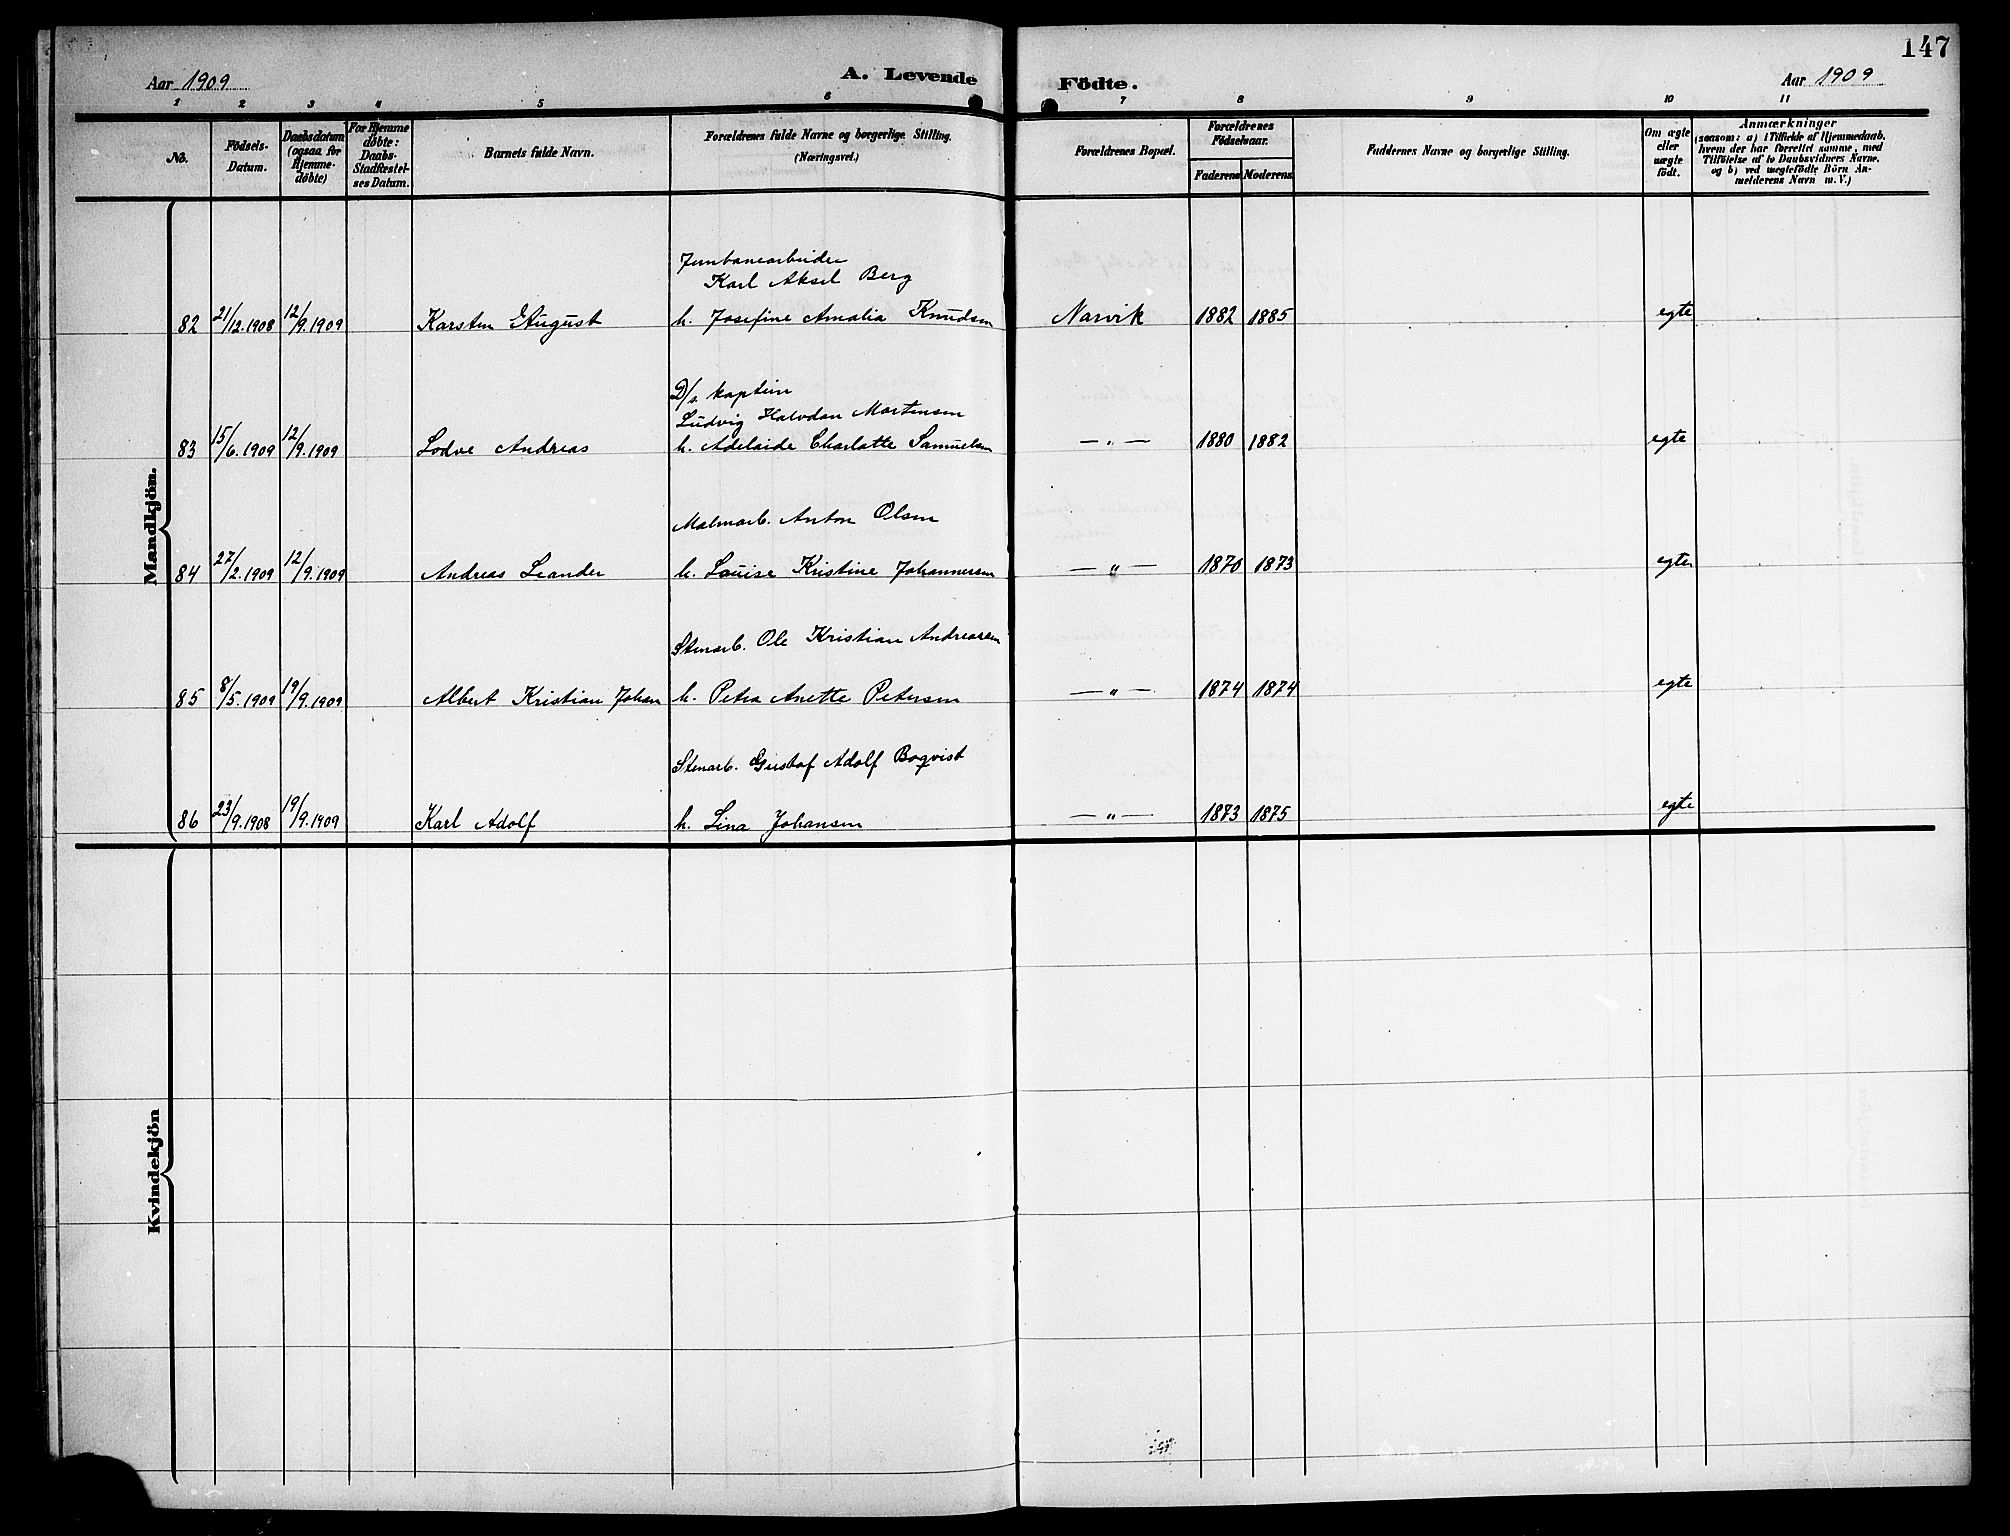 147
Aar 1909
A. Levende Födte.
Aar 1909
1 2 3 4 5 6 7 8 9 10 11
No.
Födsels-
Datum.
Daabsdatum
(ogsaa for
Hjemme-
döbte)
For Hjemme
döbte:
Daabs-
Stadfæstel-
ses Datum.
Barnets fulde Navn.
Forældrenes fulde Navne og borgerlige Stilling.
(Næringsvei.)
Forældrenes Bopæl.
Forældrenes
Födselsaar.
Faderens Moderens
Faddernes Navne og borgerlige Stilling.
Om ægte
eller
uægte
födt.
Anmærkninger
(saasom: a) i Tilfælde af Hjemmedaab.
hvem der har forrettet samme, med
Tilföielse af to Daabsvidners Navne.
og b) ved uægtefödte Börn An-
melderens Navn m. V.)
Mandkjön.
Jernbanearbeider
Karl Aksel Berg
82 21/12.1908 12/9.1909 Karsten August h. Josefine Amalia Knudsen Narvik 1882 1885 egte
D/s. kaptein
Ludvig Halvdan Martensen
83 15/6.1909 12/9.1909 Lodve Andreas h. Adelaide Charlotte Samuelsen —„— 1880 1882 egte
Malmarb. Anton Olsen
84 27/2.1909 12/9.1909 Andreas Leander h. Louise Kristine Johannesen —„— 1870 1873 egte
Stenarb. Ole Kristian Andreasen
85 8/5.1909 19/9.1909 Albert Kristian Johan h. Petra Anette Petersen —„— 1874 1874 egte
Stenarb. Gustaf Adolf Boqvist
86 23/9.1908 19/9.1909 Karl Adolf h. Lina Johansen —„— 1873 1875 egte
Kvindekjön